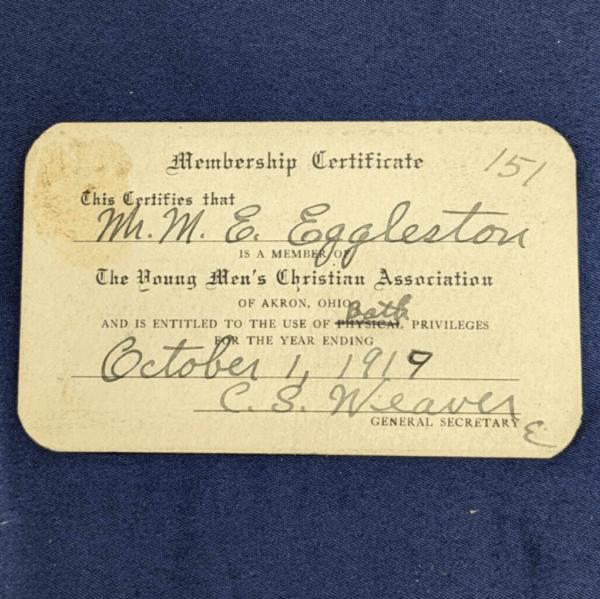 Membership Certificate
151
This Certifies that
Mr. M. E. Eggleston
IS A MEMBER OF
The Young Men's Christian Association
OF AKRON, OHIO
Bath
AND IS ENTITLED TO THE USE OF PHYSICAL PRIVILEGES
FOR THE YEAR ENDING
October 1, 1919
C. S. Weaver
GENERAL SECRETARY
E